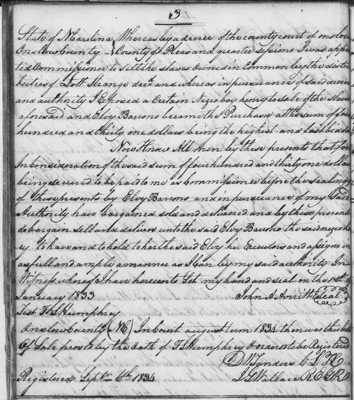 3
State of N Carolina Whereas by a decree of the county court of onslow
Onslow County County of Pleas and quarter sessions I was appoin
ted Commissioner to sell the slaves owned in Common by the distri
butees of Lott Strange decd and whereas in pursuance of said decree
and authority I Exposed a Certain Negro boy to sale of the
aforesaid and became the Purchaser at the sum of four
hundred and thirty one dollars being the highest and last bidder
Now Know All Men by these presents that for
In consideration of the said sum of four hundred and thirty one dollars
being secured to be paid to me as Commissioner before the sealing
of these presents by and in pursuance of my said
Authority have bargained sold and delivered and by these presents
do bargain sell and deliver unto the said the said negro
boy To have and to hold to her the said her Executors and assigns in
as full and ample manner as I can by my said authority In
Witness whereof I have hereunto Set my hand and seal in the
January 1833 John A Averitt Seal
Test Humphrey
Onslow County (NC) In Court august Term 1834 then was the bill
of Sale proved by the oath of Humphrey Ordered to be Registered
D W Sanders
Registered Septr 6th 1834